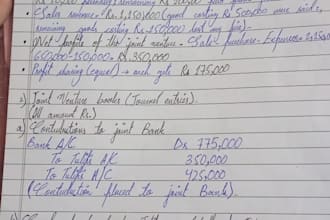 • Sales revenue = Rs. 1,150,000 (good costing Rs 500,000 were sold,
remaining goods costing Rs 150,000 lost by fire).
• Net profits of the joint venture = Sale - purchase - Expenses =
650,000 - 150,000 = Rs. 350,000
• Profit sharing (equal) → each gets Rs 175,000
2) Joint Venture books (Journal entries).
(All amount Rs.)
a) Contributions to joint Bank
Bank A/C Dr 775,000
To Tulip's A/C 350,000
To Tulip's A/C 425,000
(Contribution placed to joint Bank).